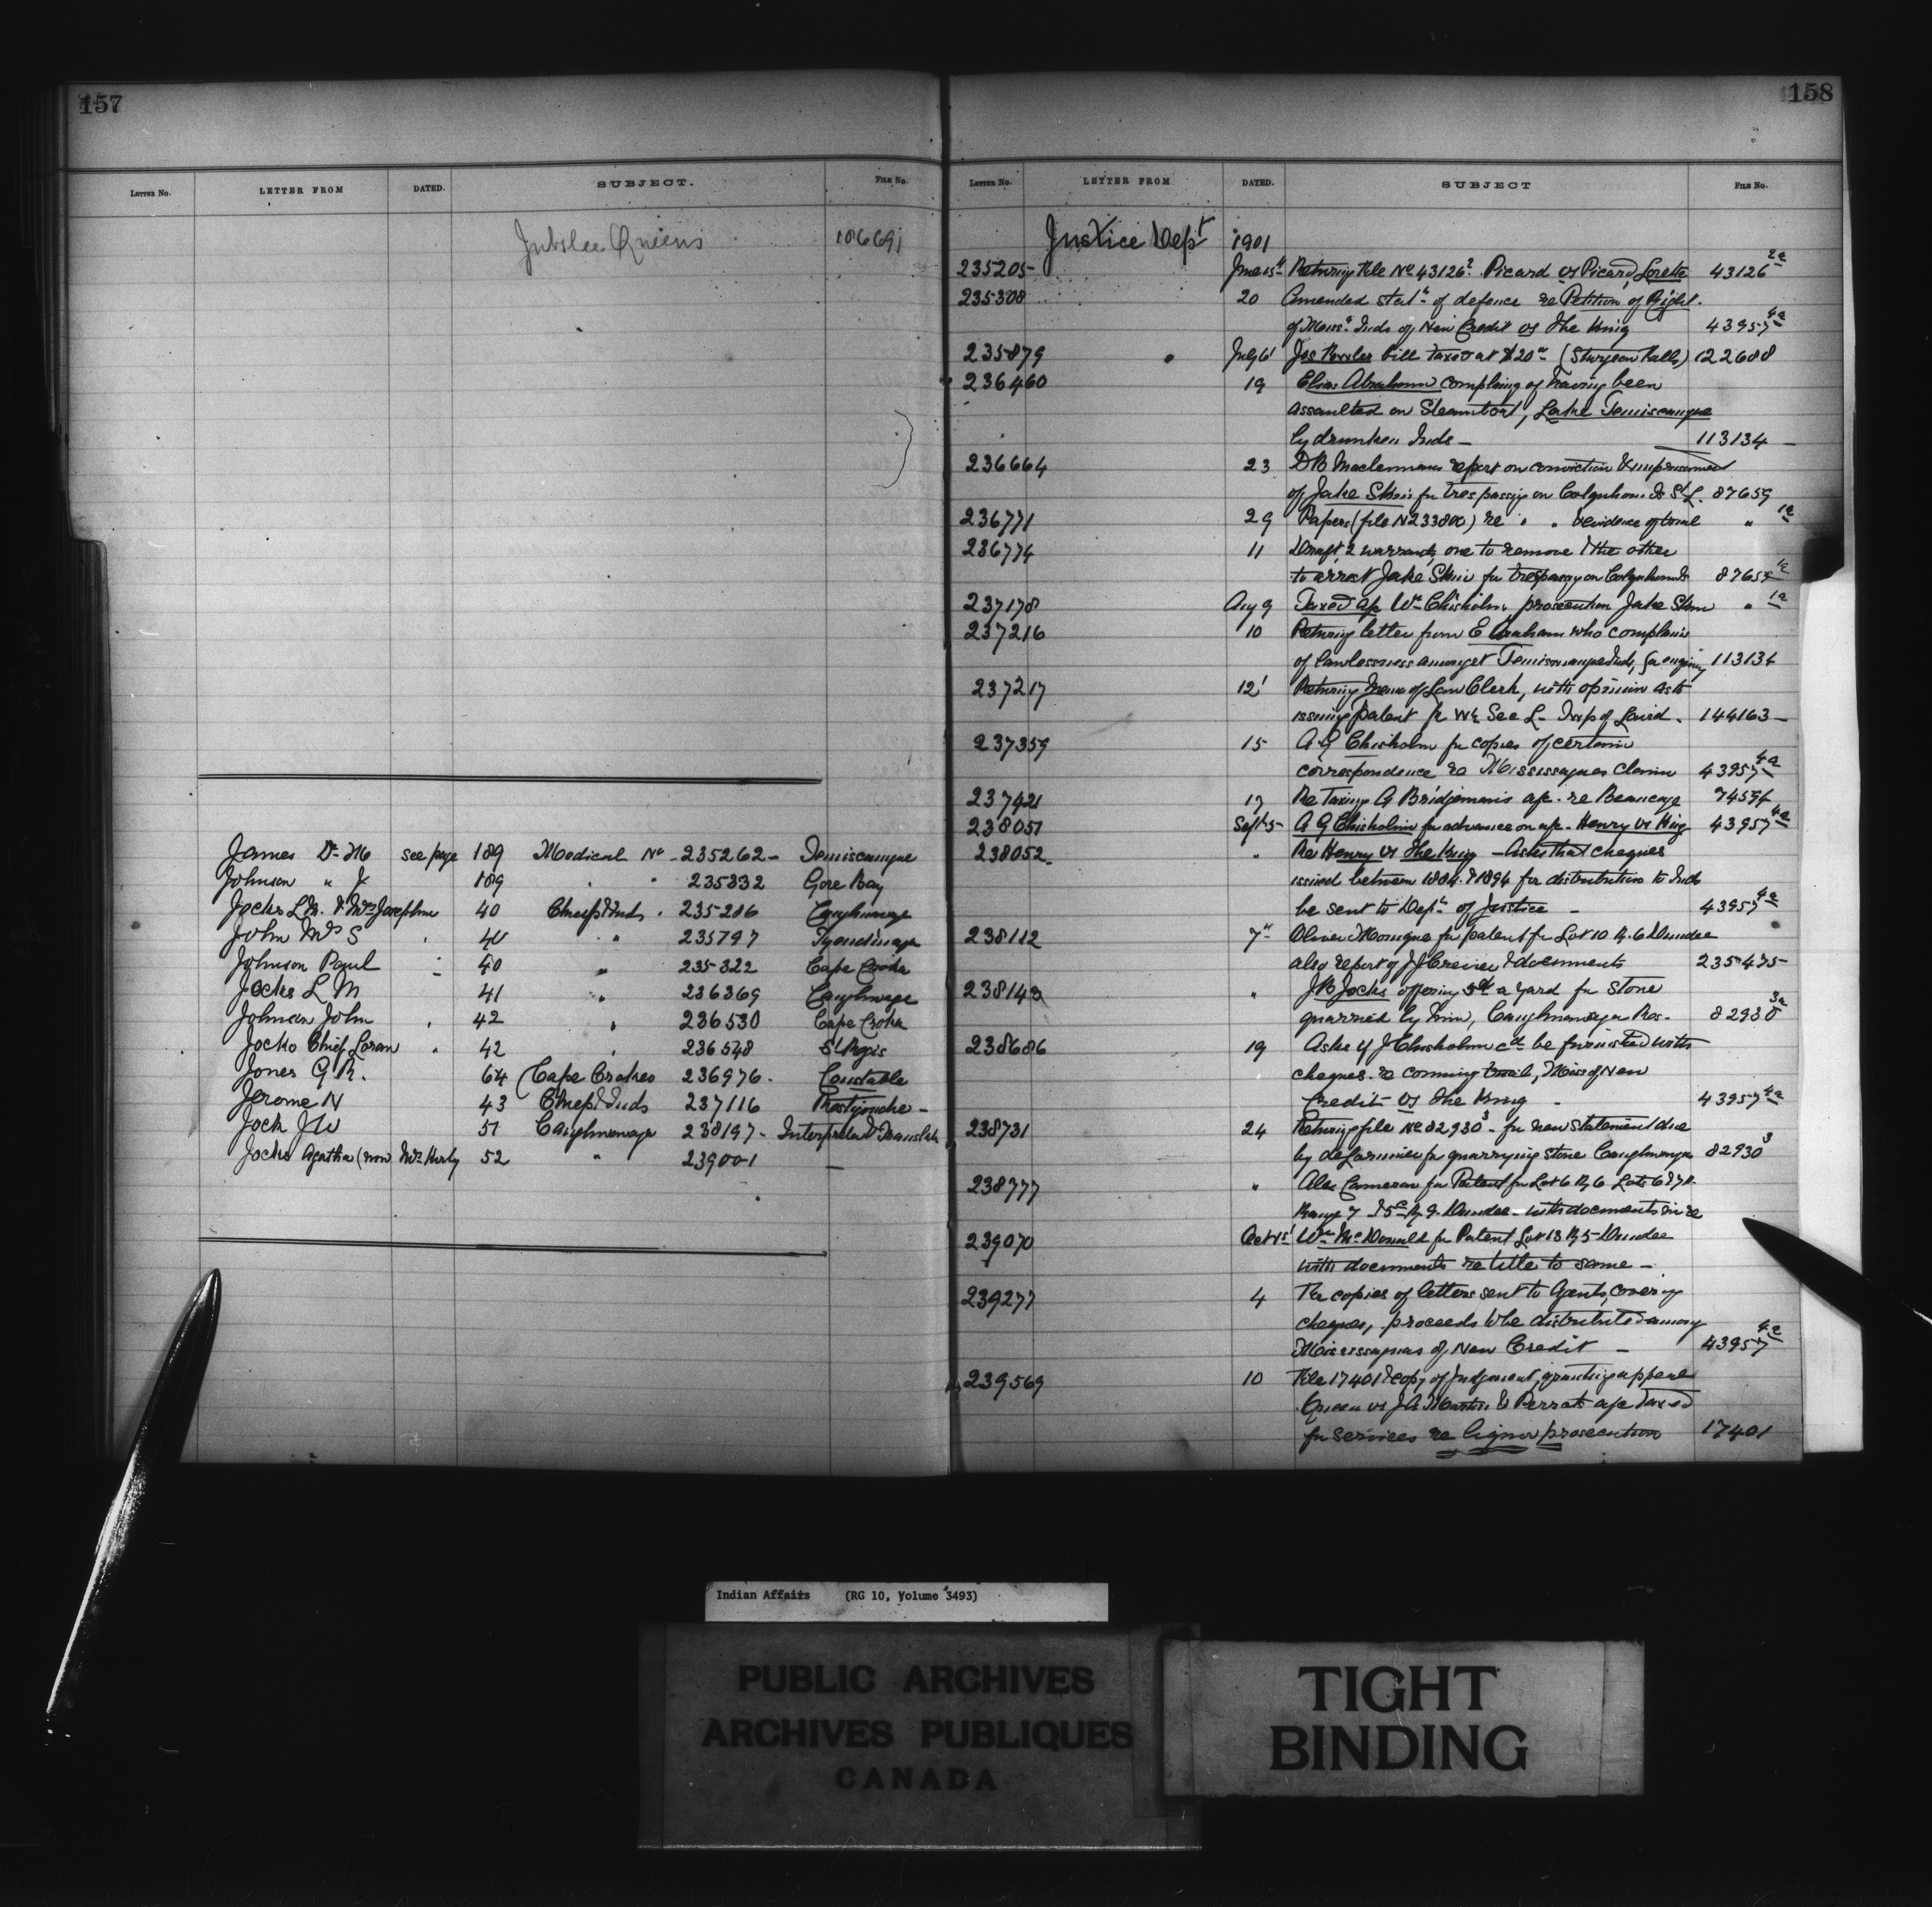 157
LETTER No. LETTER FROM DATED. SUBJECT. FILE No.
Jubilee Queens 106691
James Dr M see page 189 Medical No 235262 - Temiscamque
Johnson " J 189 " " 235832 Gore Bay
Jocks L M. & Mrs Josephine 40 Chiefs & Inds . 235286 Caughnawaga
John Mrs S 40 " 235797 Tyendinaga
Johnson Paul 40 " 235322 Cape Croker
Jocks L M 41 " 236369 Caughnawaga
Johnson John 42 " 236530 Cape Croker
Jocko Chief Loran 42 " 236548 St Regis
Jones G R. 64 (Cape Croker 236976. Constable
Jerome N 43 Chiefs & Inds 237116 Restigouche -
Jock J W 51 Caughnawaga 238197 - Interpreter & Translator
Jocks Agatha (now Mrs Kirby 52 " 239001 —
158
LETTER No. LETTER FROM DATED. SUBJECT FILE No.
Justice Dept 1901
235205 June 15th Returng File No 43126 2. Picard vs Picard, Lorette 43126 2a
235308 20 Amended statt of defence re Petition of Right.
of Missa Inds of New Credit vs The King 43957 4a
235879 July 6 Jos bill taxed at $20 (Sturgeon Falls) 122688
236460 19 Elias Abraham complaing of having been
assaulted on Steamboat, Lake Temiscamque
by drunken Inds — 113134 —
236664 23 D B Maclennans report on conviction & imprisonment
of Jake Skin for trespassing on Colquhoun Is St L. 87659
236771 29 Papers (file N 233800) re " " evidence of " 1a
236774 11 Draft 2 warrants, one to remove & the other
to arrest Jake Skin for trespassg on Colquhoun Is 87659 1a
237178 Aug 9 Taxed a/c Wm Chisholm prosecution Jake Skin " 1a
237216 10 Returng letter from E Abraham who complains
of lawlessness amongst Temiscamque Inds, for enquiry 113134
237217 12 Returng Memo of Law Clerk, with opinion as to
issuing patent for W½ Sec L - Twp of Laird. 144163 —
237359 15 A G Chisholm for copies of certain
correspondence re Mississaguas Claim 43957 4a
237421 17 Re Taxing G Bridgemans a/c. re Beaucage 74594
238051 Sept 5 A G Chisholm for advance on a/c - Henry vs King 43957 4a
238052. " Re Henry vs The King — Asks that cheques
issued between 1884 & 1894 for distribution to Inds
be sent to Dept of Justice — 43957 4a
238112 7th Oliver for patent for Lot 10 R. 6 Dundee
also report of J J Crevier & documents 235475
238143 " J B Jocks offering 5cts a yard for stone
quarried by him, Caughnawaga Res. 82930 3a
238686 19 Asks if J Chisholm cd be furnished with
cheques. re coming trial, Miss of New
Credit vs The King - 43957 4a
238731 24 Returng file No 82930 3 - for new statement due
by deLorimier for quarrying stone Caughnawaga 82930 3
238777 " Alex Cameron for Patent for Lot 6 R, 6 Lots 6 & 7 R
Range 7 & 5 R, 9. Dundee - with documents in re
239070 Oct 1st Wm McDonald for Patent Lot 13 R, 5 Dundee
with documents re title to same —
239277 4 Re copies of letters sent to Agents, covering
cheques, proceeds to be distributed among
Mississaguas of New Credit — 43957 4a
239569 10 File 17401 & copy of Judgment, granting appeal
Queen vs J A Martin & Perrat a/c taxed
for services re liquor prosecution 17401
Indian Affairs (RG 10, Volume 3493)
PUBLIC ARCHIVES
ARCHIVES PUBLIQUES
CANADA
TIGHT
BINDING